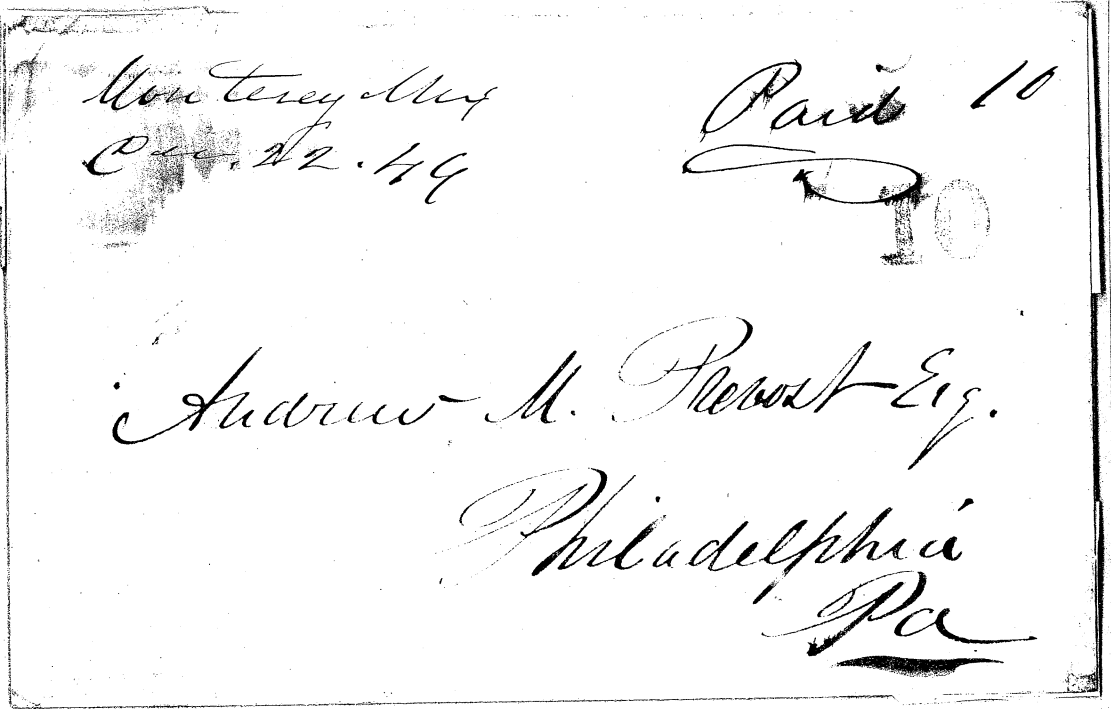 Monterey Mex
Dec. 22. 49
Paid 10
10
Andrew M. Prevost Esq.
Philadelphia
Pa